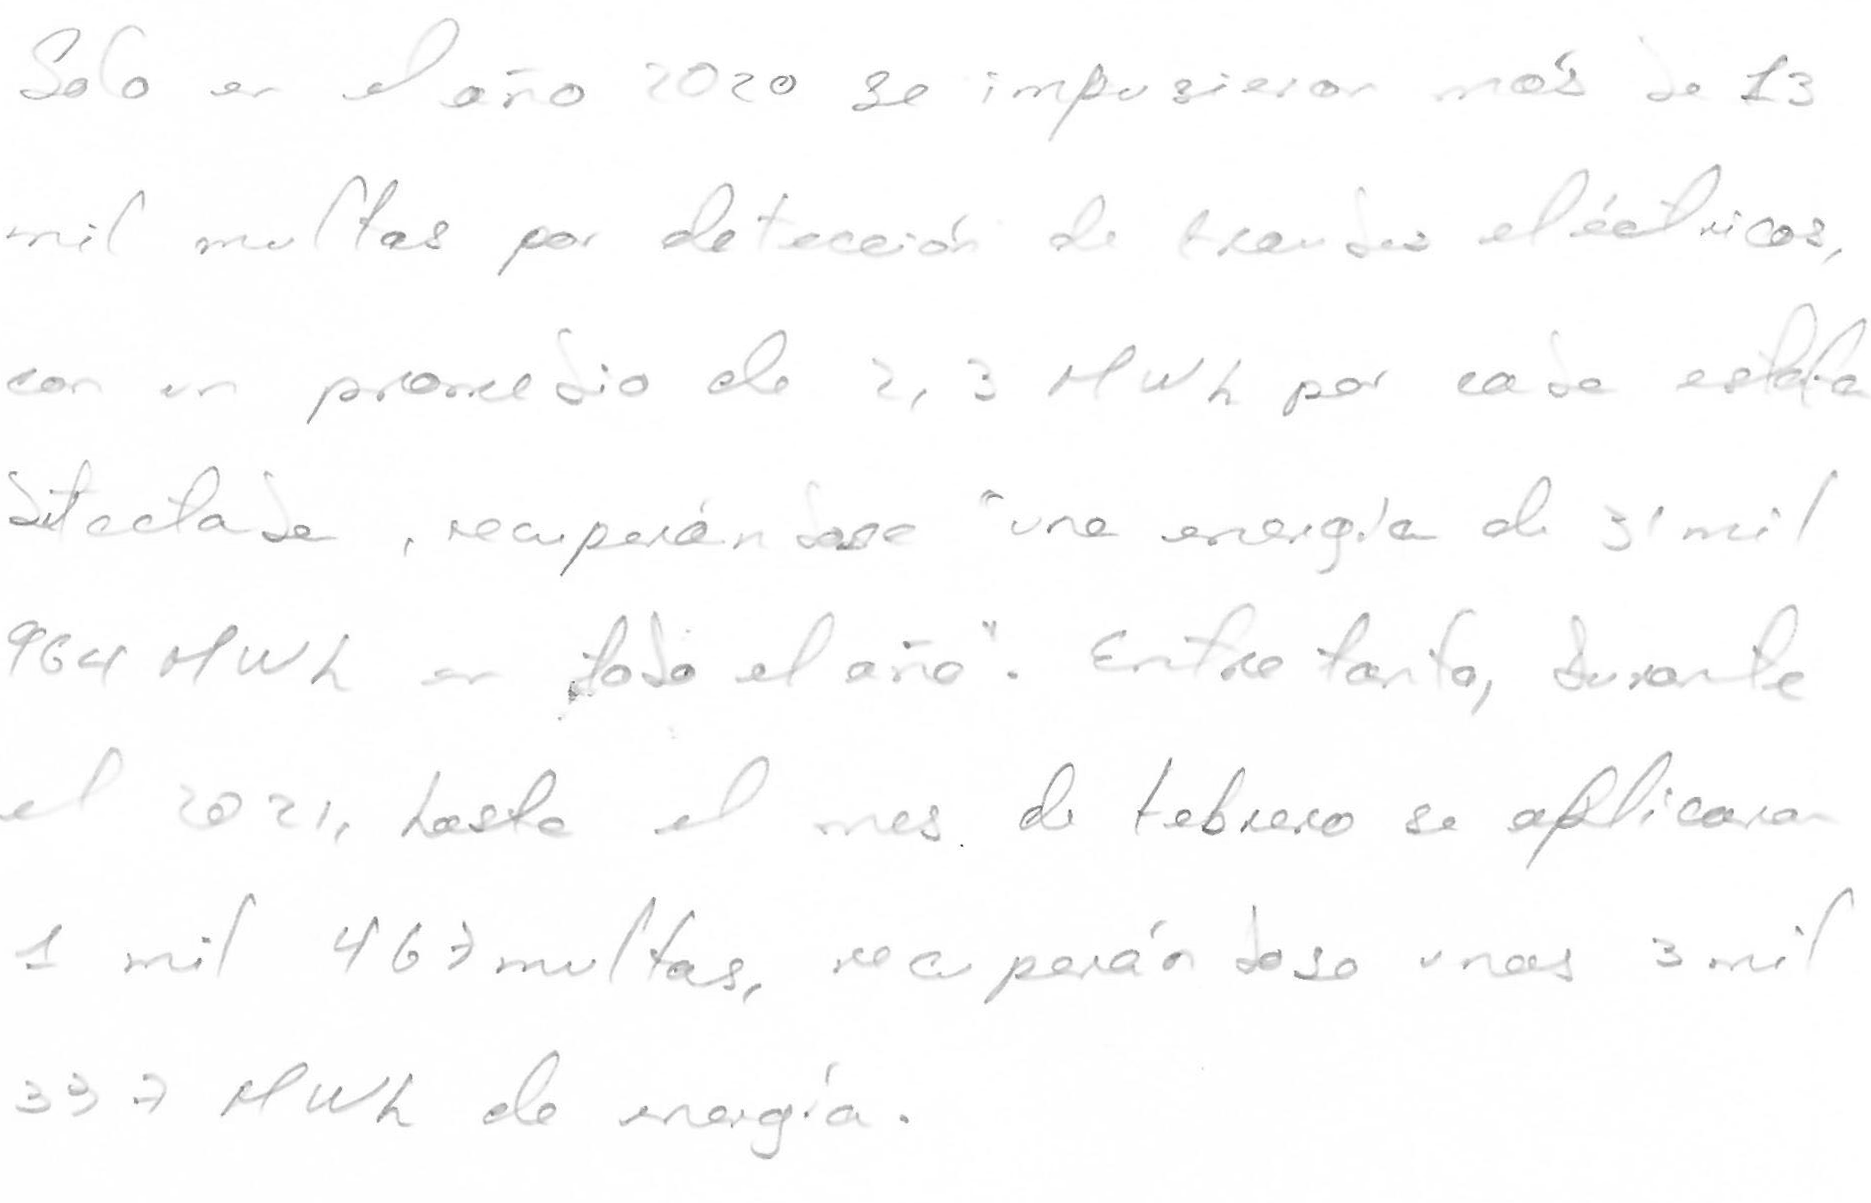 Solo en el año 2020 se impusieron más de 13
mil multas por detección de fraudes eléctricos,
con un promedio de 2,3 MWh por cada estafa
detectada, recuperándose "una energía de 31 mil
964 MWh en todo el año". Entre tanto, durante
el 2021, hasta el mes de febrero se aplicaron
1 mil 467 multas, recuperándose unas 3 mil
337 MWh de energía.